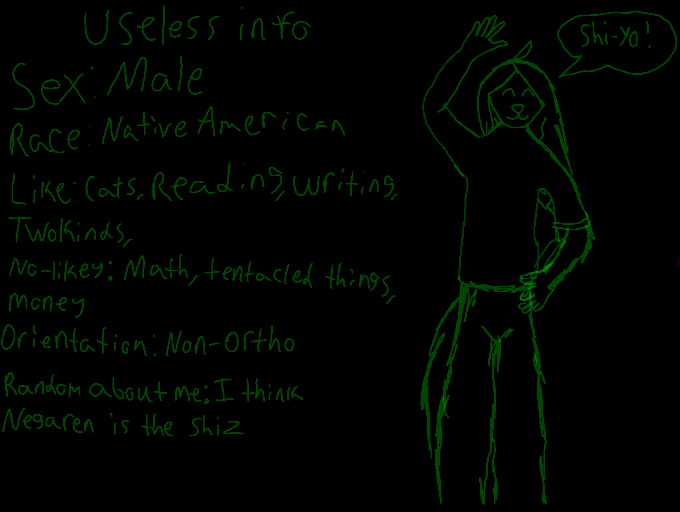 Useless info
Shi-yo!
Sex: Male
Race: Native American
Like: Cats, Reading, writing,
Twokinds,
No-likey: Math, tentacled things,
money
Orientation: Non-Ortho
Random about me: I think
Negaren is the shiz